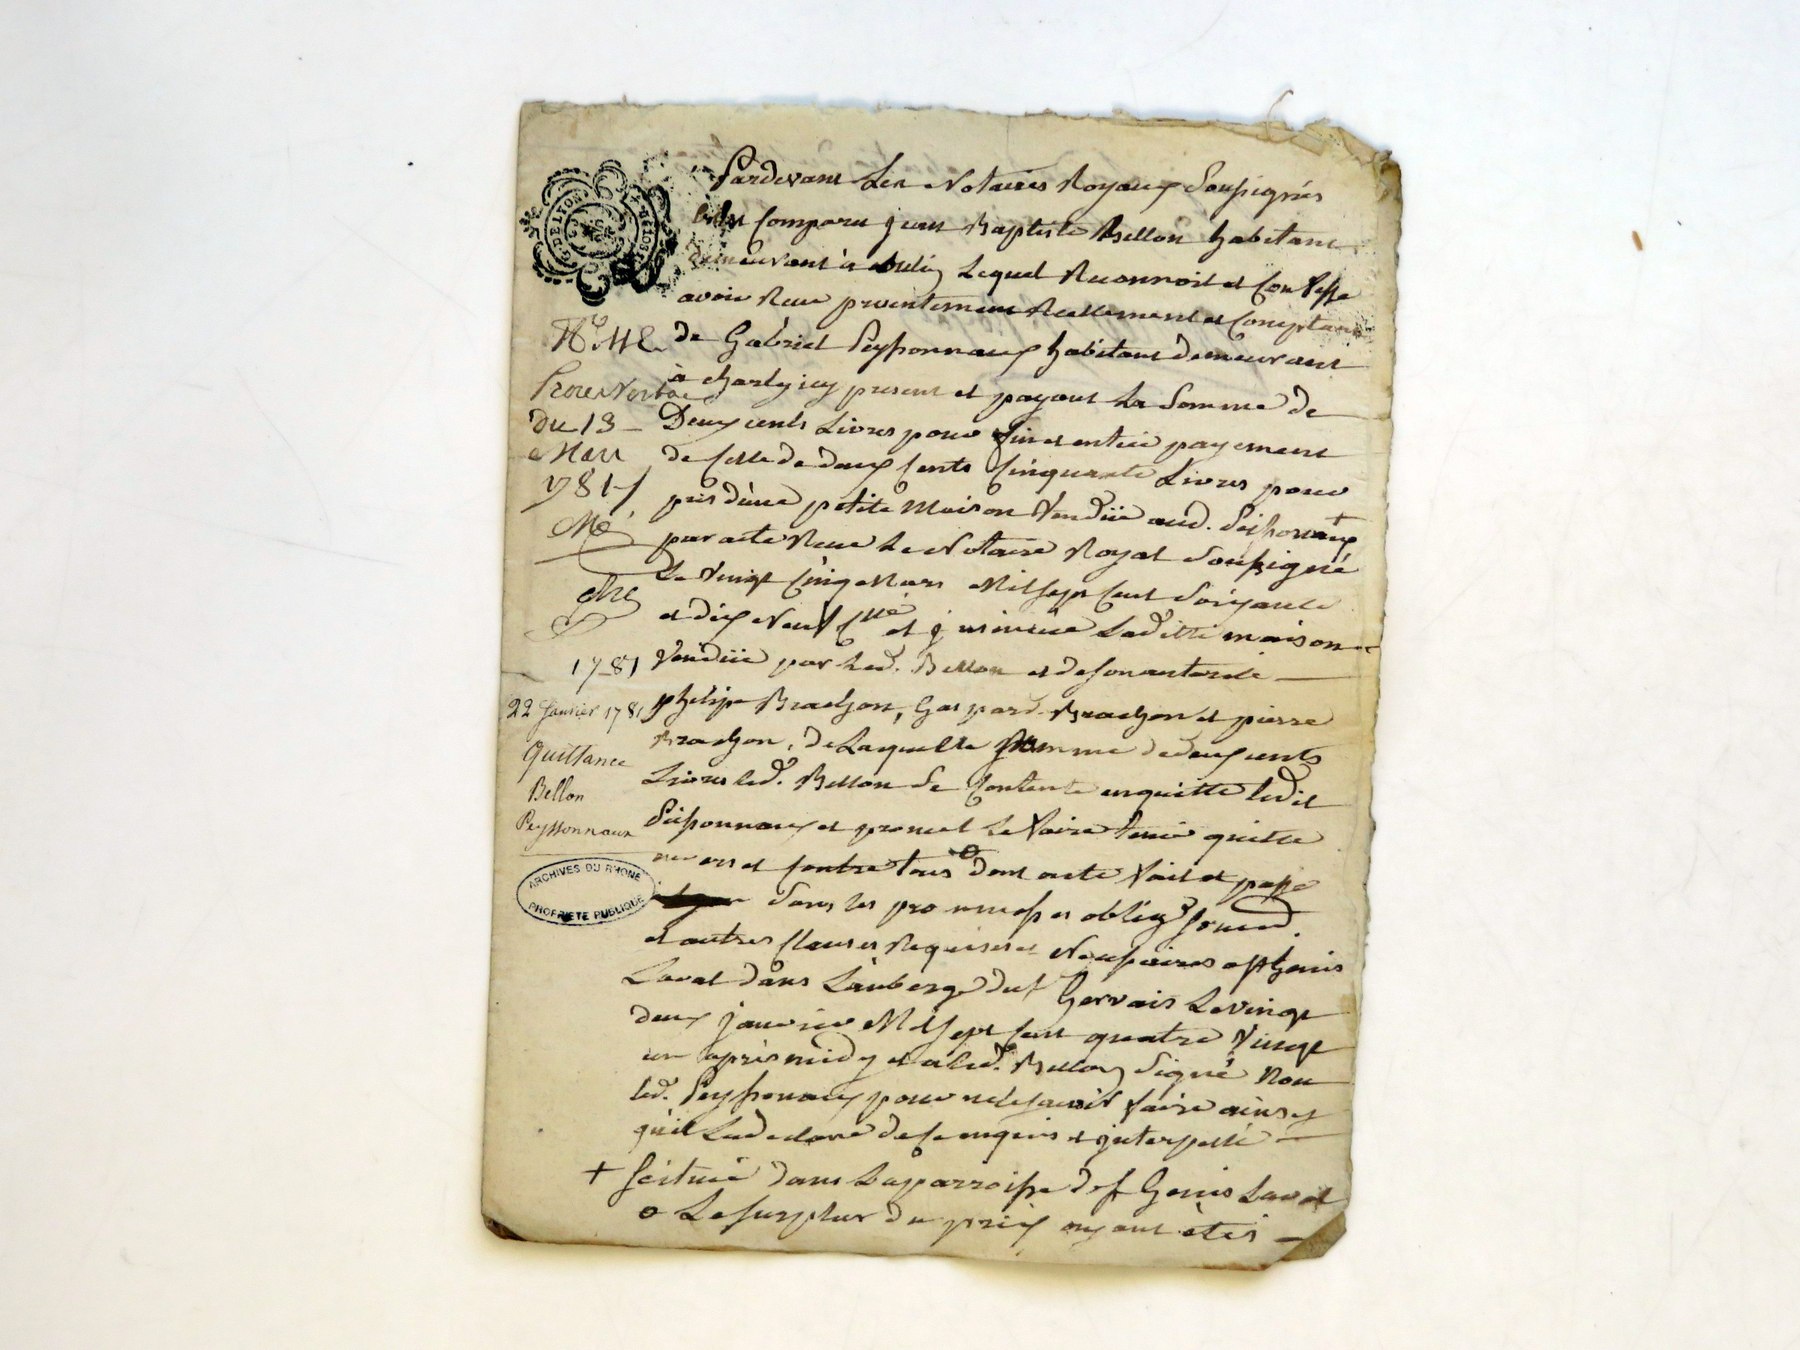 G. DE LYON
Pardevant Les Notaires Royaux Soussignés
est Comparu jean Baptiste Bellon habitant
demeurant à Lequel Reconnoit et Confesse
avoir Receu presentement Reellement et Comptant
de Gabriel Peyssonnaux habitant demeurant
à charly icy present et payant La Somme de
Deux cents Livres pour fin et entier payement
de Celle de deux Cents Cinquante Livres pour
prix d'une petite Maison Vendüe aud. Peissonnaux +
par acte Receu Le Notaire Royal Soussigné
Le Vingt Cinq Mars Mil Sept Cent Soixante
et dix Neuf Cllé et jnsinuée Laditte maison
Vendüe par Led. Bellon et de son autorité
philipe Bradjon, Gaspard Bradjon et pierre
Bradjon, de Laquelle Somme de deux cents
Livres led. Bellon Se Contente en quitte Ledit
Peissonnaux et promet Le faire tenir quitte
envers et Contre tous o dont acte fait et passé
dans les promesses oblig.
et autres Clauses Requises et Necessaires a St Genis
Laval dans L'auberge du Sr Gervais Le vingt
deux janvier Mil Sept Cent quatre Vingt
un après midy et a led. Bellon Signé Non
led. Peyssonnaux pour ne le savoir faire ainsy
qu'il L'a declaré de Ce enquis et jnterpellé
+ Scituée dans La parroisse de St Genis Laval
o Le Surplus du prix ayant étés
Procès Verbal
du 13
Mars
1781
1781
22 Janvier 1781
Quittance
Bellon
Peyssonnaux
ARCHIVES DU RHONE
PROPRIÉTÉ PUBLIQUE